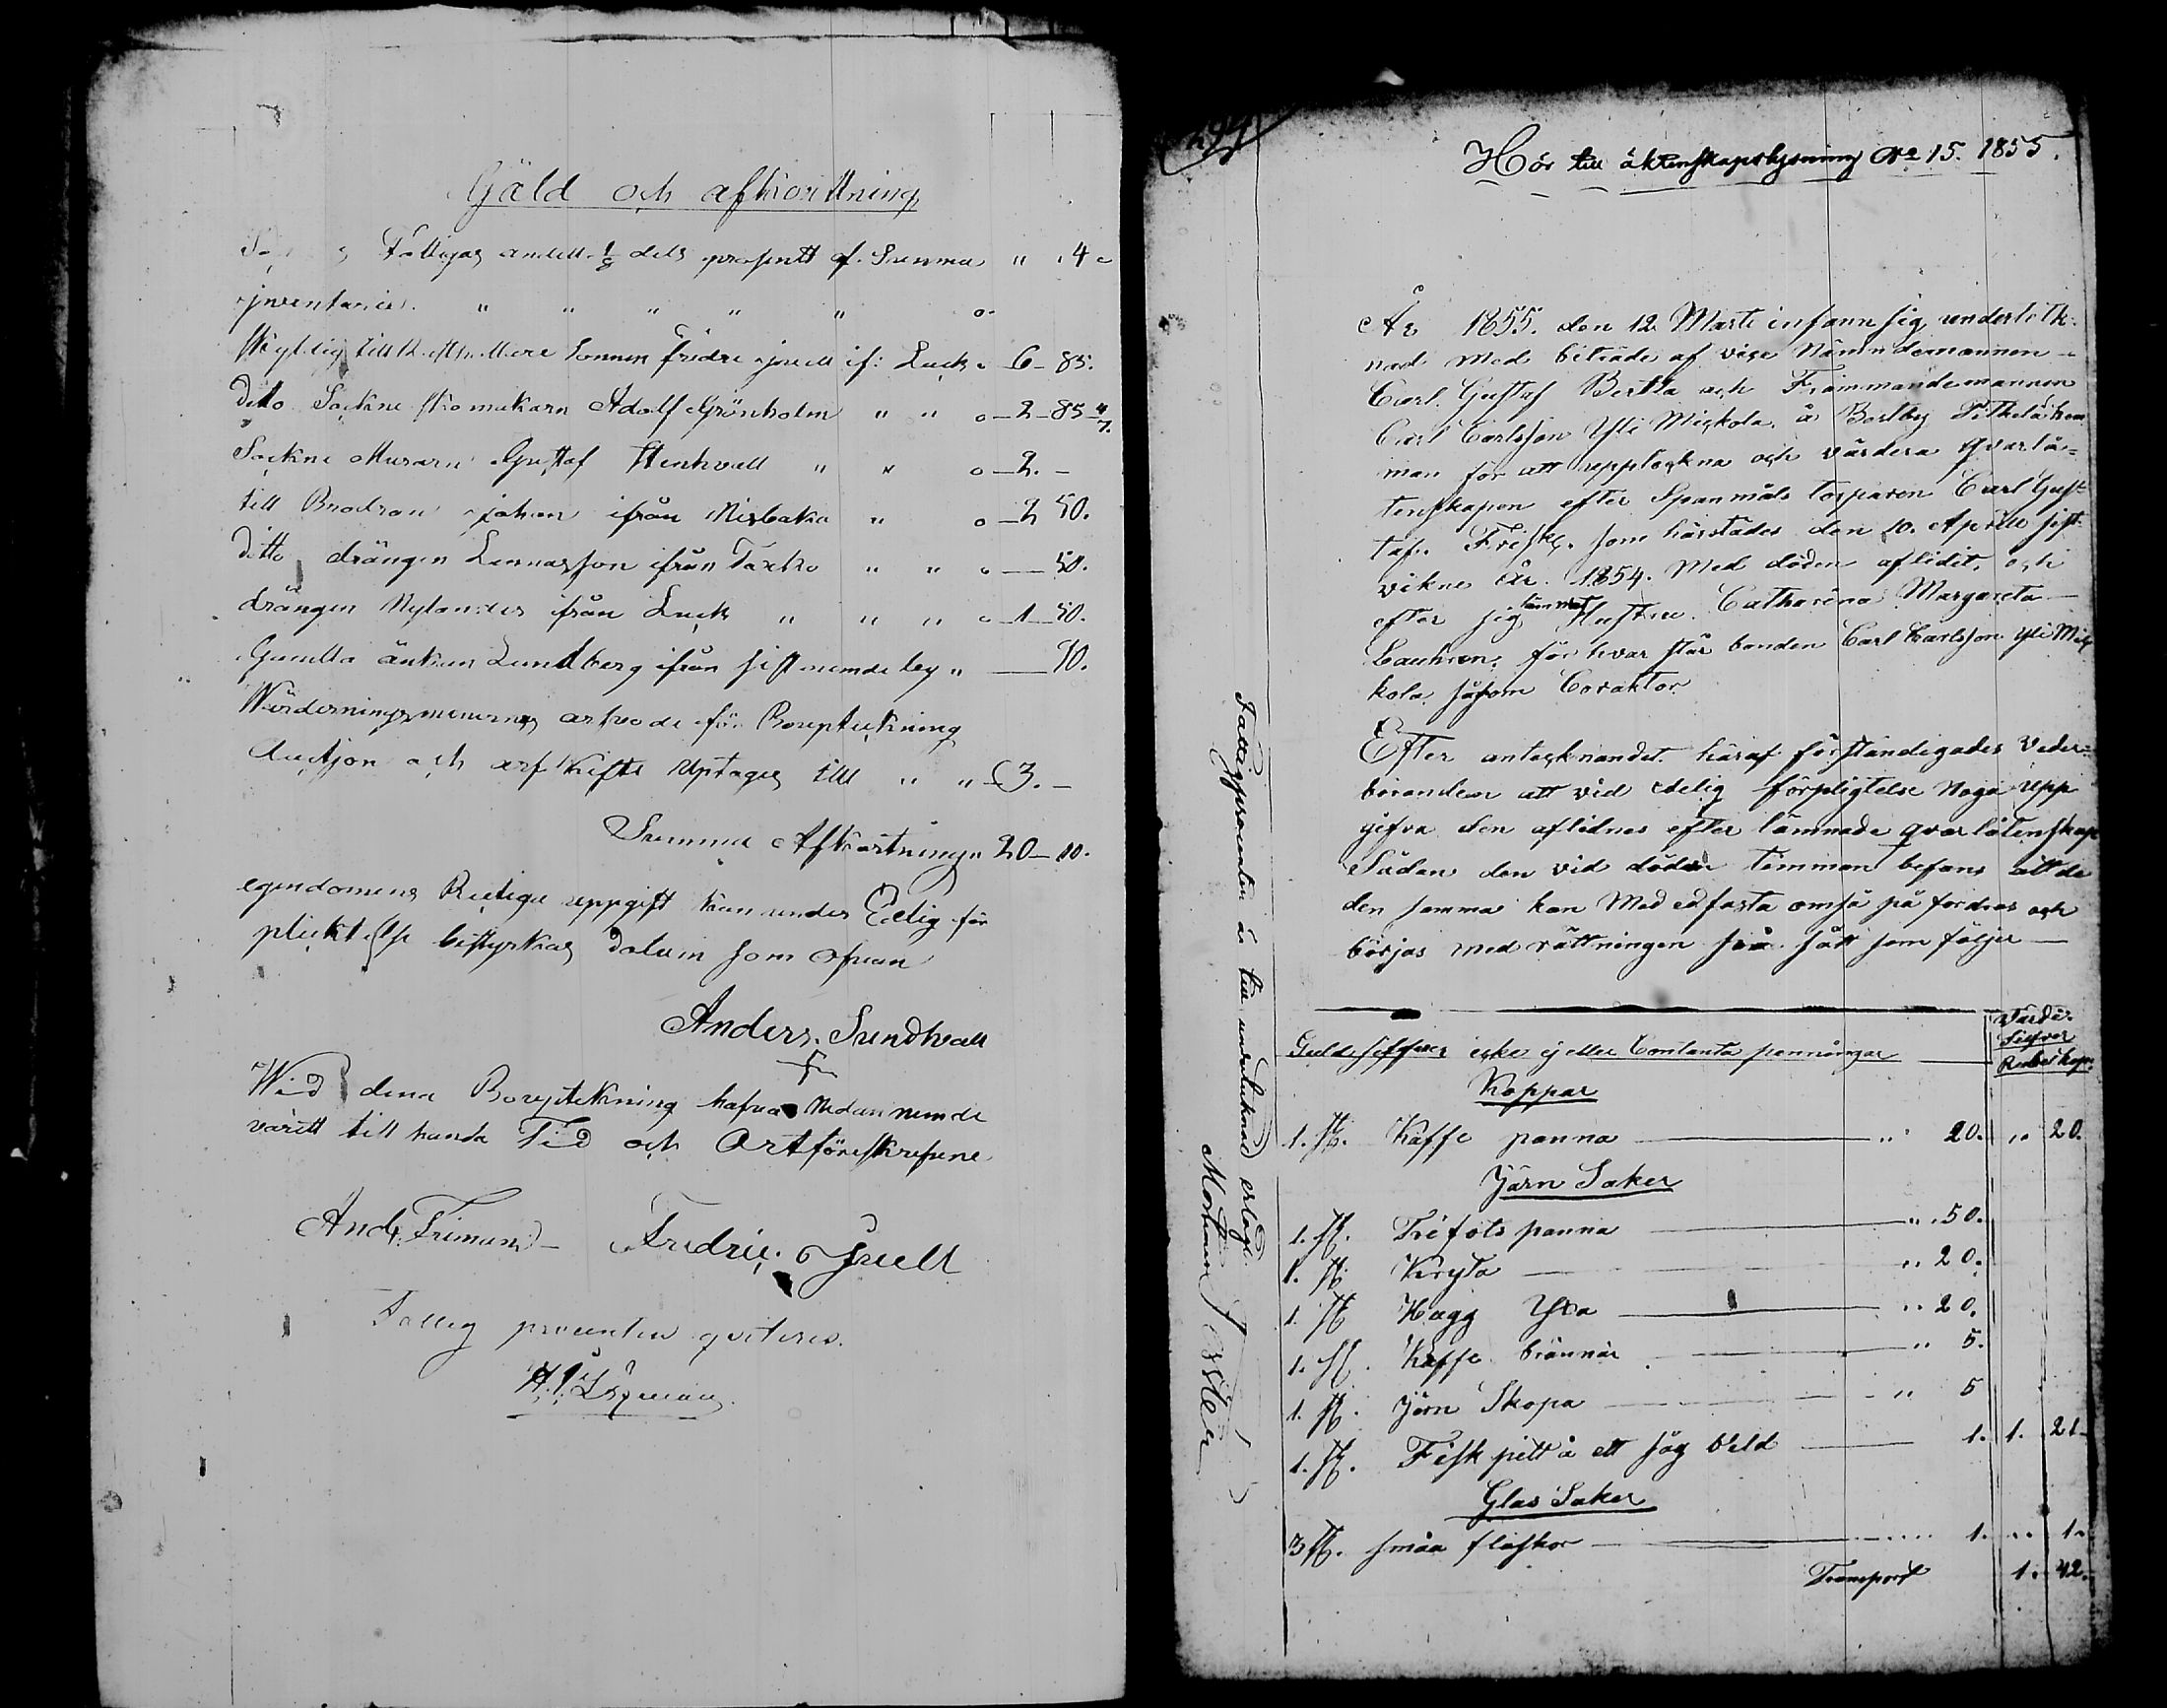 Gäld och afkorttning
Fattigas andell 1/8 dels prosentt af Summa " " 4 "
jnventariet. " " " " " o
skyllig till Fredric jsrell if: Luck " 6 - 85.
Ditto Sockne skomakarn Adolf Grönholm " " o - 2 - 85 4/7.
Sockne Murarn Gustaf Stenkvall " " o - 2. -
till Brodren johan ifrån Misbaka " o - 2 50.
Ditto drängen Lennarsson ifrån " " " — 50.
drängen Nylander från Luck " " " " 1 - 50.
Gamlla änkan Lundberg ifrån sistnemde by " — 90.
Wärderningsmenernes arfvode för Bouptekning
Auctjon och arfskifte Uptages till " " £3. -
Summa Afkortning " 20 - 10.
egendomens Rictiga uppgift kan under Edlig för
plicktelse bestyrkas Datum som ofvan
Anders. Sundkvall
Wid dena Bouptekning hafva Nedan nemde
varitt till handa Tid och Ort föreskrefvene
And. Frimand - Fredric. jsrell
Fattig procenten qviteres.
Hör till äktenskapslysning No 15. 1855.
År 1855. den 12 Marti infann sig undertek-
nad Med biträde af vice Nämndemannen -
Carl Gustaf Bertla och Frammandemannen
Carl Carlsson Yli Miskola å Bosby
man för att uppteckna och värdera qvarlå-
tenskapen efter Spanmåls torparen Carl Gus-
taf. Frisk. som härstädes den 10. Aprill sist-
vikne År 1854. Med döden aflidit, och
efter sig lämnat Hustru Catharina Margareta -
för hvar står bonden Carl Carlsson Yli Mis
kola såsom Coraktor
Efter antecknandet häraf förständigades Veder-
böranden att vid edelig förpligtelse Noga upp
gifva den aflidnes efter lämnade qvarlåtenskap
Sådan den vid döds timman befans att de
den samma kan Med ed fästa om så på fordras och
börjas med rättningen på sätt som följer —
Värde.
Silfver
Rubel kop.
Guld silfver ecke ej eller Contanta penningar —
Koppar
1. st. Kaffe panna — " 20. " 20.
Järn Saker
1. st. Trefots panna — " 50.
1. st. Kryta — " 20.
1. st Hugg Yxa — " 20.
1. st. Kaffe brännar — " 5.
1. st. Järn Skopa — " 5
1. st. Fisk pitt å ett såg beld — 1. 1. 21
Glas Saker
3 st. småa flaskor — 1. " 1.
Transport 1. 42.
Fattigprocenten är till undertecknad erlagd.